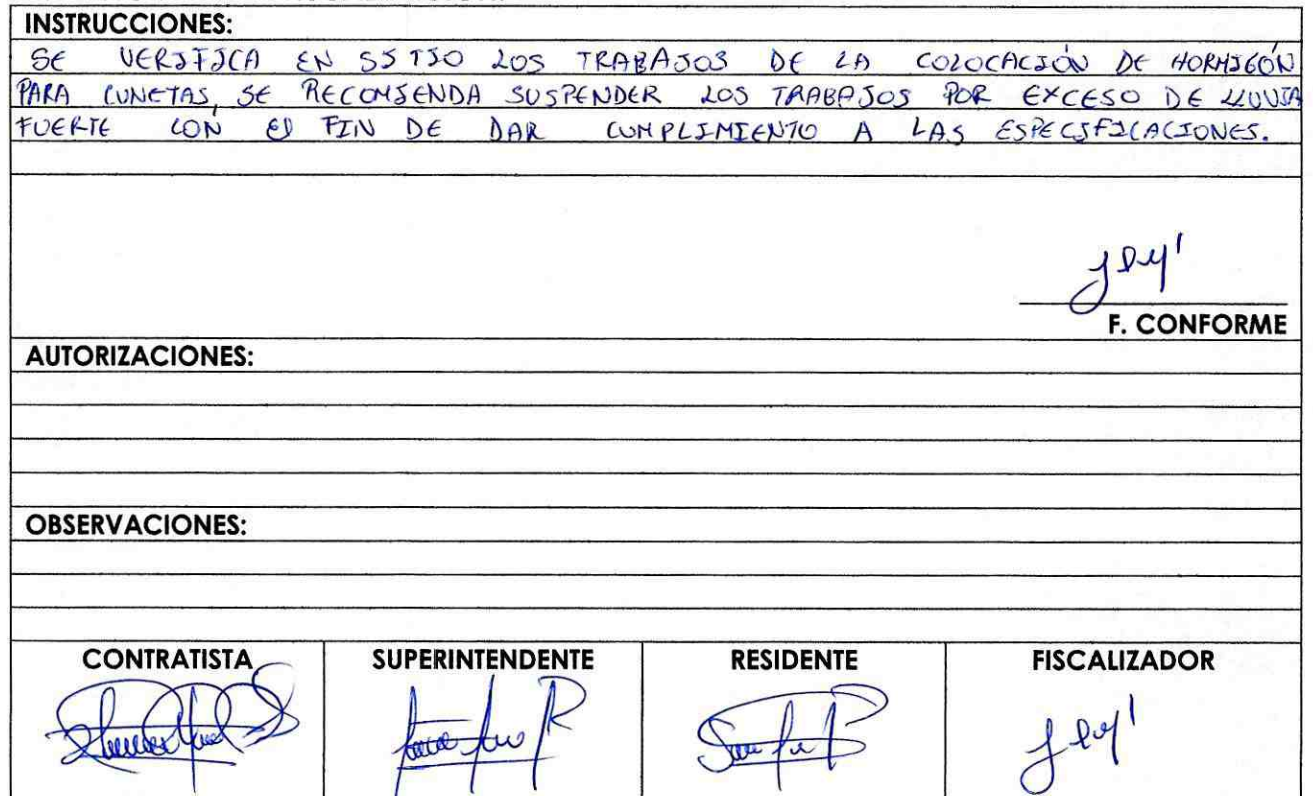 INSTRUCCIONES:
SE VERIFICA EN SITIO LOS TRABAJOS DE LA COLOCACIÓN DE HORMIGÓN
PARA CUNETAS, SE RECOMIENDA SUSPENDER LOS TRABAJOS POR EXCESO DE LLUVIA
FUERTE CON EL FIN DE DAR CUMPLIMIENTO A LAS ESPECIFICACIONES.
F. CONFORME
AUTORIZACIONES:
OBSERVACIONES:
CONTRATISTA SUPERINTENDENTE RESIDENTE FISCALIZADOR